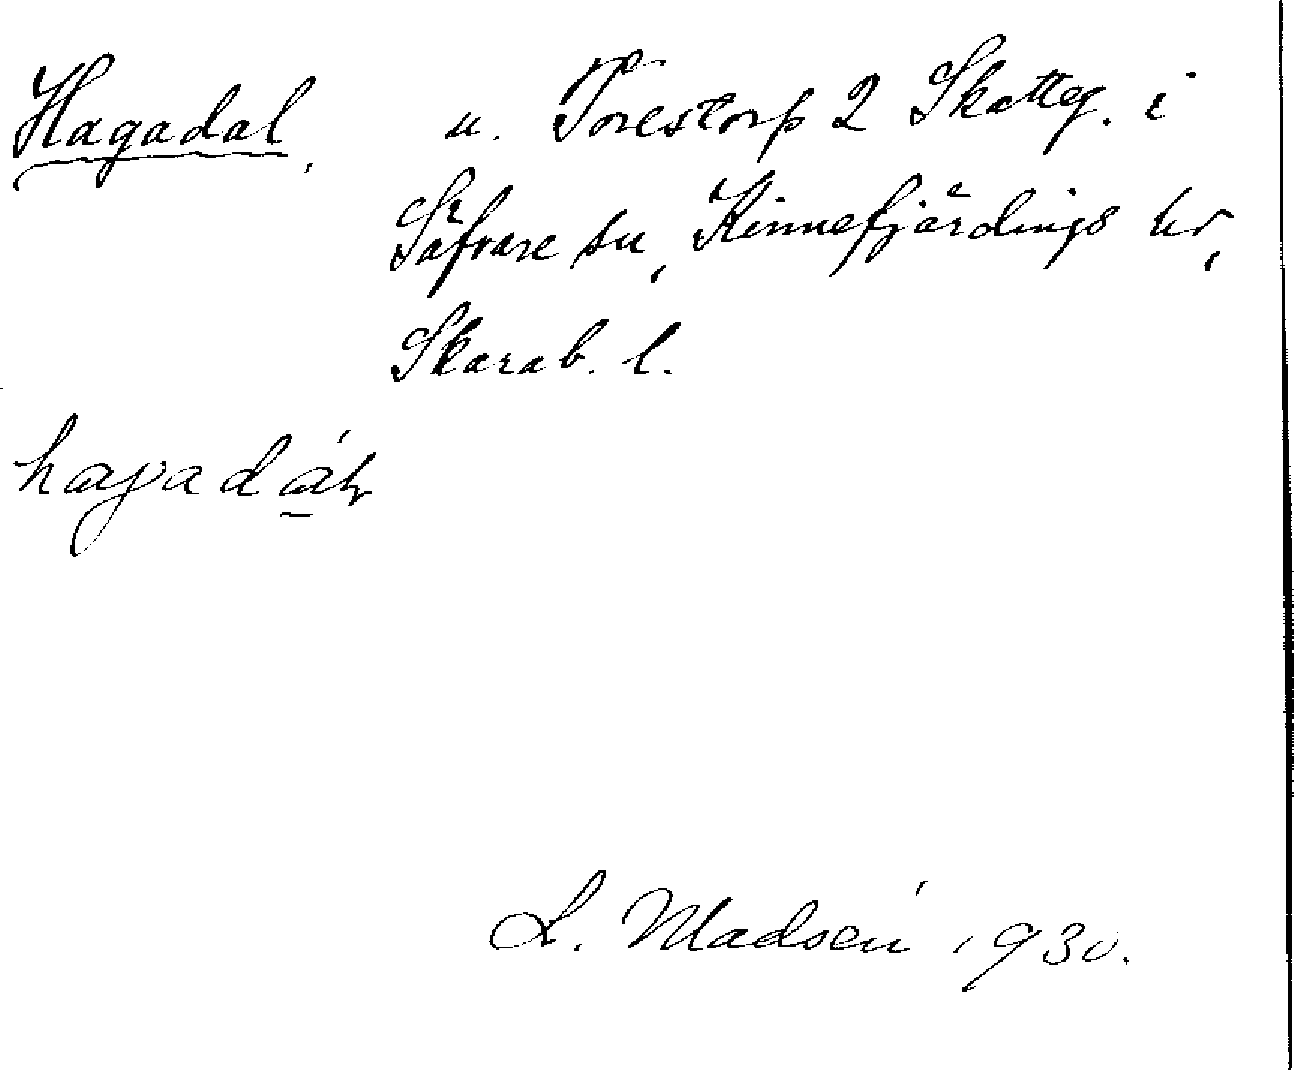 Hagadal, u. Torestorp 2 Skatteg. i
Säfvare sn, Kinnefjärdings hr,
Skarab. l.
L. Madsén 1930.